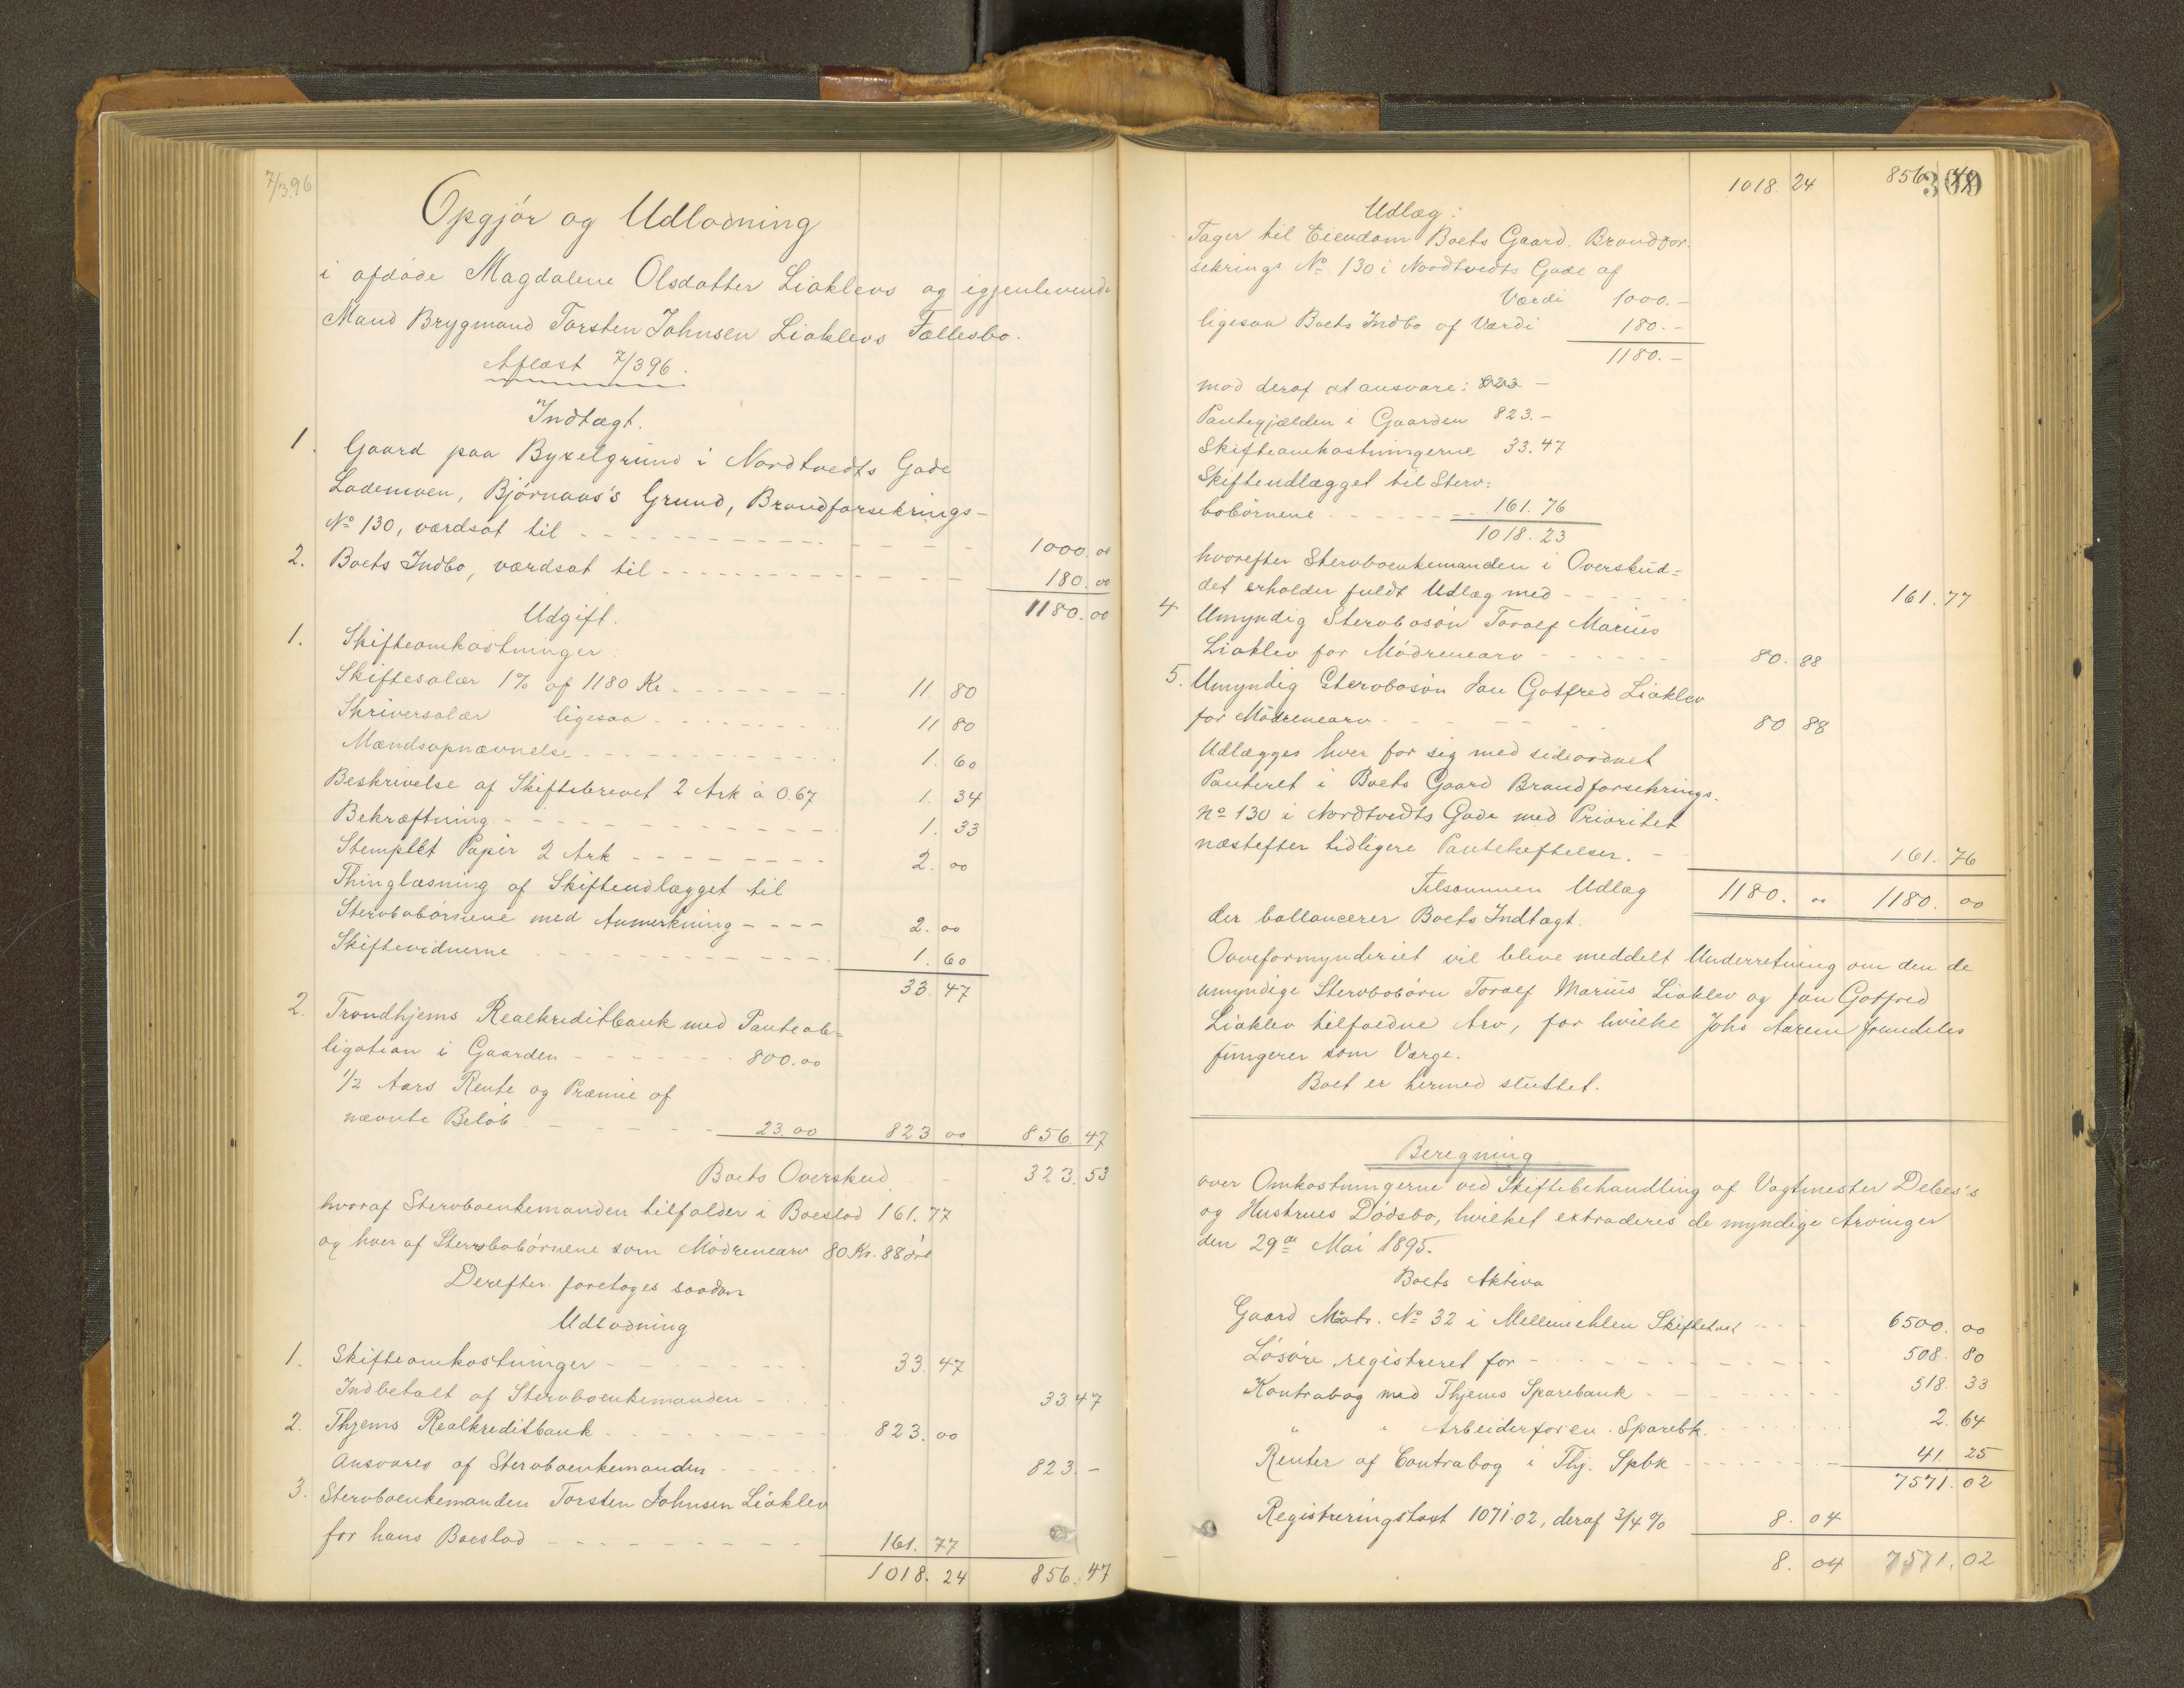 7/396
Opgjør og Udlodning
i afdøde Magdalene Olsdatter Liaklevs og igjenlevende
Mand Brygmand Torsten Johnsen Liaklevs Fællesbo.
Aflæst 7/396.
Indtægt.
1. Gaard paa Byxelgrund i Nordtvedts Gade
Lademoen, Bjørnaas's Grund, Brandforsekrings-
No 130, værdsat til - - - 1000.00
2. Boets Indbo, værdsat til - - - 180.00
1180.00
Udgift.
1. Skifteomkostninger:
Skiftesalær 1% af 1180 Kr. - - - 11.80
Skriversalær ligesaa - - - 11 80
Mændsopnævnelse - - - 1.60
Beskrivelse af Skiftebrevet 2 Ark à 0.67 1. 34
Bekræftning - - - 1. 33
Stemplet Papir 2 Ark - - - 2. 00
Thinglæsning af Skifteudlægget til
Stervbobørnene med Anmerkning - - - 2. 00
Skiftevidnerne - - - 1. 60
33. 47
2. Trondhjems Realkreditbank med Panteob=
ligation i Gaarden - - - 800.00
1/2 Aars Rente og Præmie af
nævnte Beløb - - - 23.00 823 00 856.47
Boets Overskud - 323.53
hvoraf Stervboenkemanden tilfalder i Boeslod 161.77
og hver af Stervbobørnene som Mødrenearv 80 Kr. 88 øre
Derefter foretages saadan
Udlodning
1. Skifteomkostninger - - - 33.47
Indbetalt af Stervboenkemanden - 33.47
2. Thjems Realkreditbank - - - 823.00
Ansvares af Stervboenkemanden - - - 823.-
3. Stervboenkemanden Torsten Johnsen Liaklev
for hans Boeslod - - - 161.77
1018.24 856.47
1018.24 856.47
399
Udlæg:
Tager til Eiendom Boets Gaard, Brandfor-
sekrings No 130 i Nordtvedts Gade af
Værdi 1000.-
ligesaa Boets Indbo af Værdi 180.-
1180.-
mod deraf at ansvare: 823 -
Pantegjælden i Gaarden 823.-
Skifteomkostningerne 33.47
Skifteudlægget til Sterv=
bobørnene - - - 161.76
1018.23
hvorefter Stervboenkemanden i Overskud=
det erholder fuldt Udlæg med - - - 161.77
4 Umyndig Stervbosøn Toralf Marius
Liaklev for Mødrenearv - - - 80.88
5. Umyndig Stervbosøn Jan Gotfred Liaklev
for Mødrenearv - - - 80 88
Udlægges hver for sig med sideordnet
Panteret i Boets Gaard Brandforsekrings-
No 130 i Nordtvedts Gade med Prioritet
næstefter tidligere Pantehæftelser. - 161.76
Tilsammen Udlæg 1180.00 1180.00
der ballancerer Boets Indtægt.
Overformynderiet vil blive meddelt Underretning om den de
umyndige Stervbobørn Toralf Marius Liaklev og Jan Gotfred
Liaklev tilfaldne Arv, for hvilke Johs
fungerer som Værge.
Boet er hermed sluttet.
Beregning
over Omkostningerne ved Skiftebehandling af Vagtmester Debes's
og Hustrues Dødsbo, hvilket extraderes de myndige Arvinger
den 29de Mai 1895.
Boets Aktiva
Gaard Matr. No 32 i Mellemihlen Skiftetaxt - - - 6500.00
Løsøre registreret for - - - 508.80
Kontrabog med Thjems Sparebank - - - 518.33
" " Arbeiderforen. Sparebk. 2.64
Renter af Contrabog i Thj. Spbk - - - 41.25
7571.02
Registreringstaxt 1071.02, deraf 3/4% 8.04
8.04 7571.02